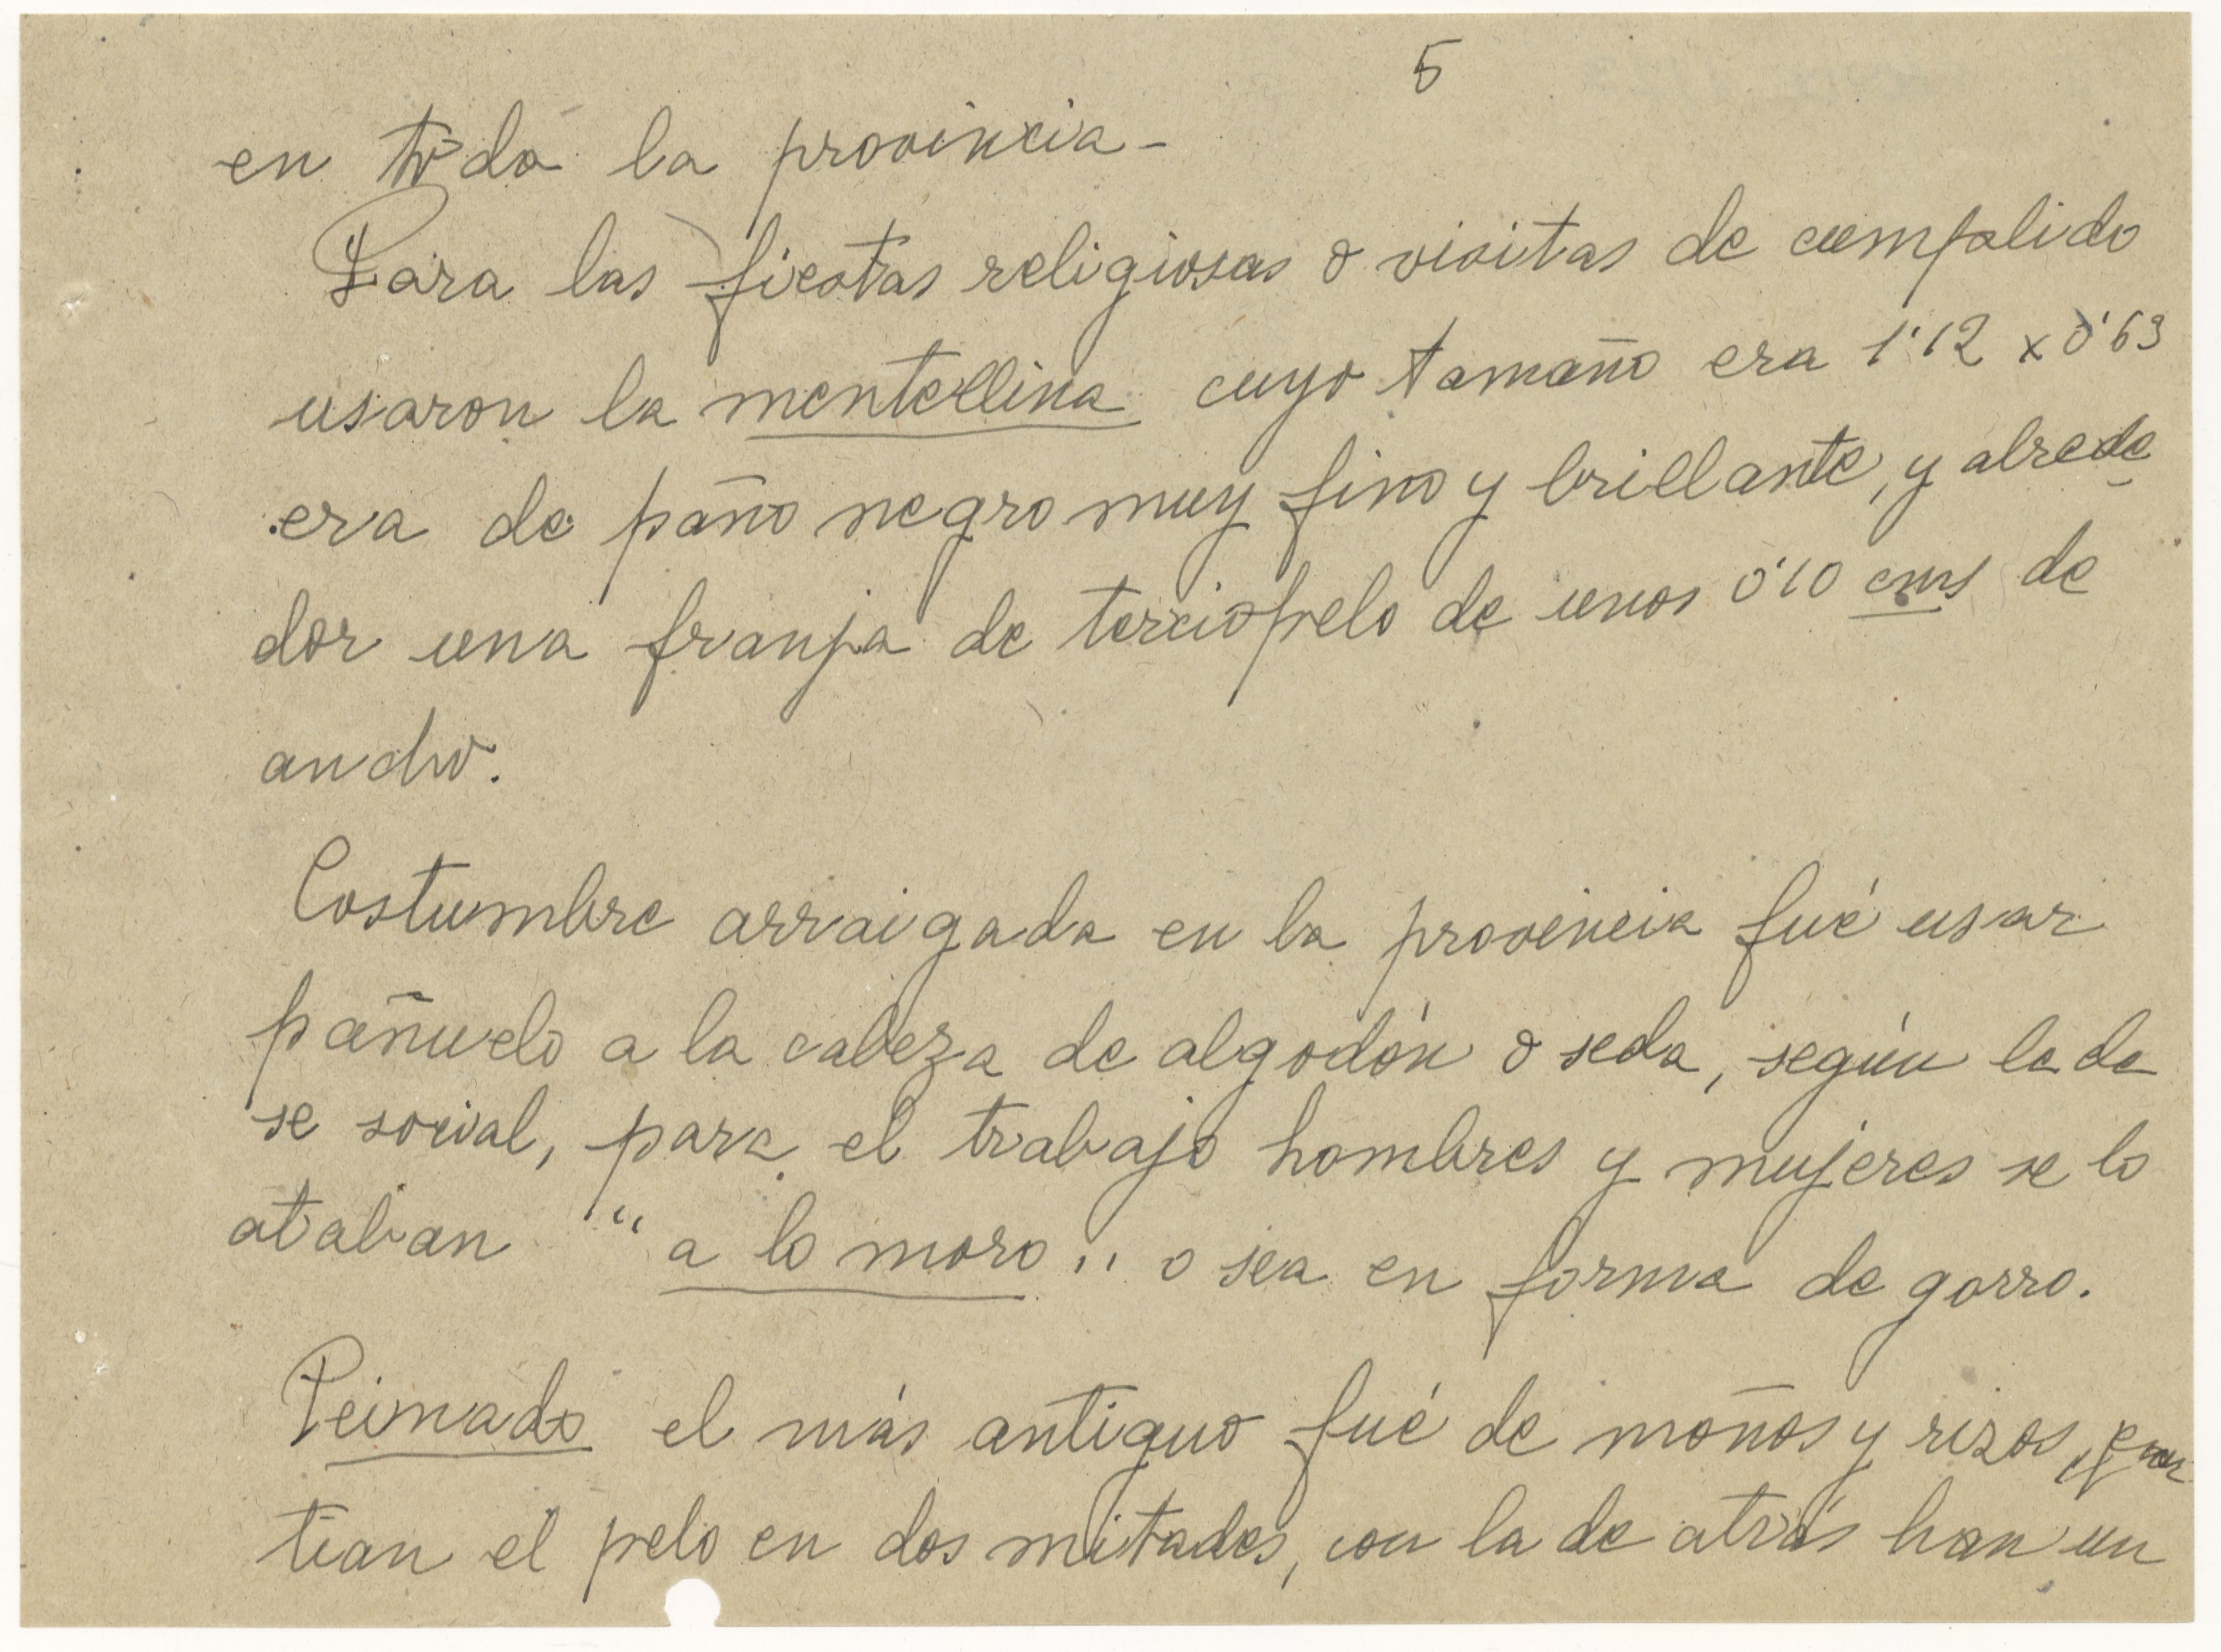 5
en toda la provincia-
Para las fiestas religiosas o visitas de cumplido
usaron la mentellina cuyo tamaño era 1'12 x 0'63
era de paño negro muy fino y brillante, y alrede
dor una franja de terciopelo de unos 0'10 cms de
ancho.
Costumbre arraigada en la provincia fué usar
pañuelo a la cabeza de algodón o seda, según la cla
se social, para el trabajo hombres y mujeres se lo
ataban "a lo moro" o sea en forma de gorro.
Peinado el más antiguo fué de moños y rizos, par
tian el pelo en dos mitades, con la de atrás han un